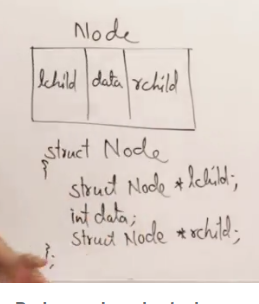 Node
lchild data rchild
struct Node
{
struct Node * lchild;
int data;
struct Node * rchild;
};